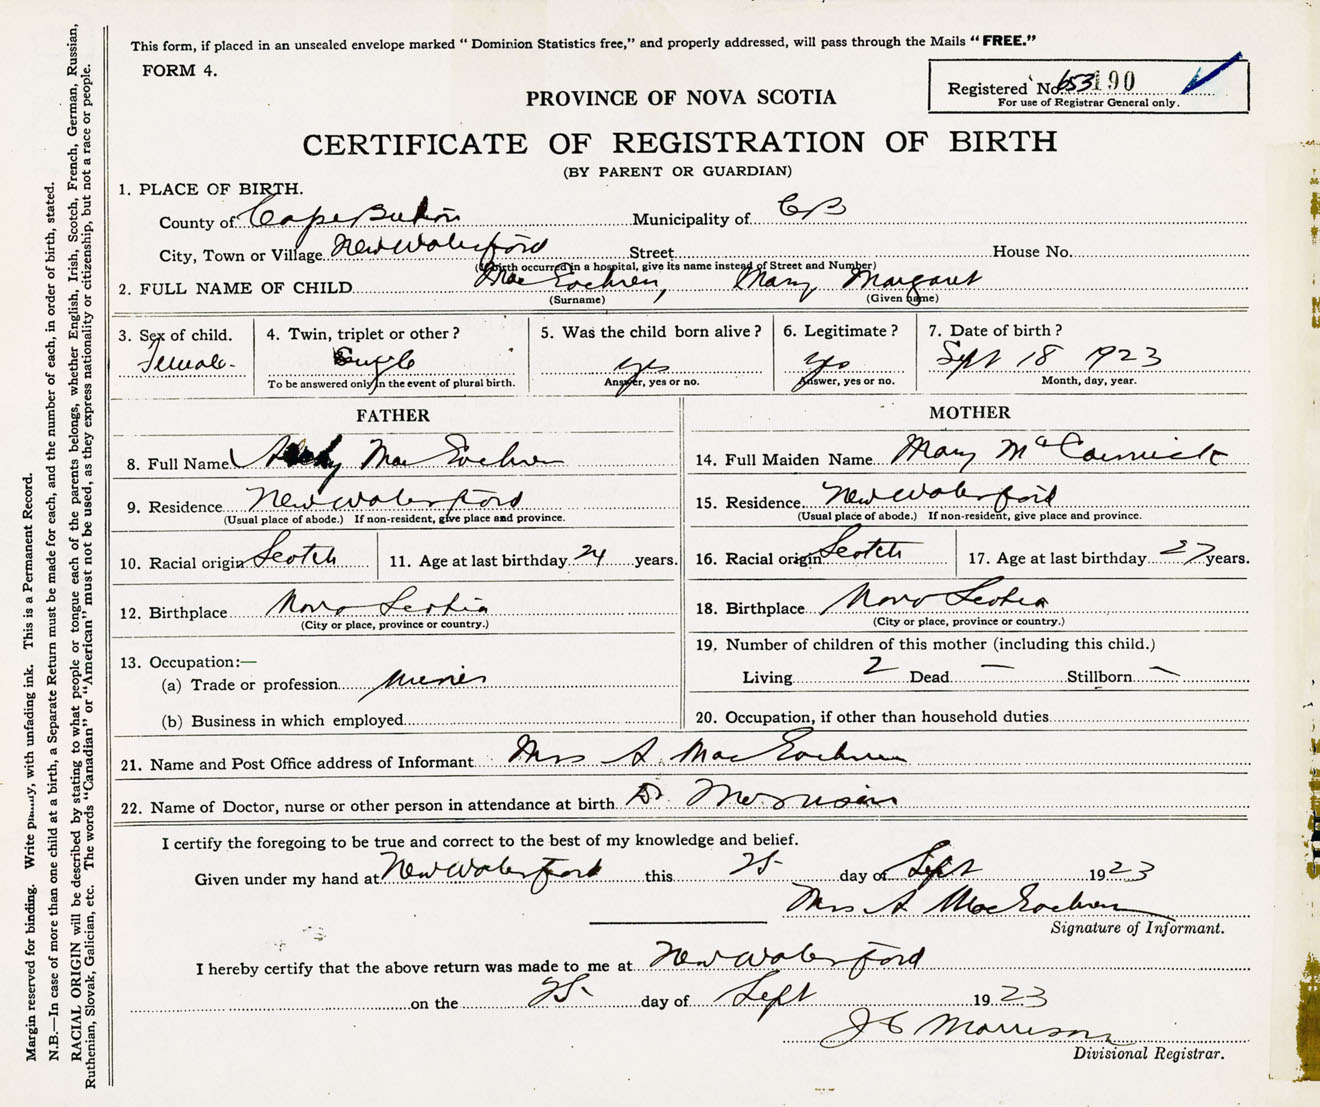 This form, if placed in an unsealed envelope marked “ Dominion Statistics free,” and properly addressed, will pass through the Mails “ FREE.”
FORM 4.
Registered No. 653190
For use of Registrar General only.
PROVINCE OF NOVA SCOTIA
CERTIFICATE OF REGISTRATION OF BIRTH
(BY PARENT OR GUARDIAN)
1. PLACE OF BIRTH.
County of Cape Breton Municipality of CB
City, Town or Village New Waterford Street House No.
(If birth occurred in a hospital, give its name instead of Street and Number)
2. FULL NAME OF CHILD MacEachren, Mary Margaret
(Surname) (Given name)
3. Sex of child. 4. Twin, triplet or other ? 5. Was the child born alive ? 6. Legitimate ? 7. Date of birth ?
Female. Single yes yes Sept 18 1923
To be answered only in the event of plural birth. Answer, yes or no. Answer, yes or no. Month, day, year.
FATHER MOTHER
8. Full Name MacEachren 14. Full Maiden Name Mary McCormick
9. Residence New Waterford 15. Residence New Waterford
(Usual place of abode.) If non-resident, give place and province. (Usual place of abode.) If non-resident, give place and province.
10. Racial origin Scotch 11. Age at last birthday 24 years. 16. Racial origin Scotch 17. Age at last birthday 27 years.
12. Birthplace Nova Scotia 18. Birthplace Nova Scotia
(City or place, province or country.) (City or place, province or country.)
19. Number of children of this mother (including this child.)
13. Occupation:—
(a) Trade or profession miner Living 2 Dead — Stillborn —
(b) Business in which employed 20. Occupation, if other than household duties
21. Name and Post Office address of Informant Mrs A MacEachren
22. Name of Doctor, nurse or other person in attendance at birth Dr Morrison
I certify the foregoing to be true and correct to the best of my knowledge and belief.
Given under my hand at New Waterford this 25 day of Sept 1923
Mrs A MacEachren
Signature of Informant.
I hereby certify that the above return was made to me at New Waterford
on the 25 day of Sept 1923
J C Morrison
Divisional Registrar.
Margin reserved for binding. Write plainly, with unfading ink. This is a Permanent Record.
N.B.—In case of more than one child at a birth, a Separate Return must be made for each, and the number of each, in order of birth, stated.
RACIAL ORIGIN will be described by stating to what people or tongue each of the parents belongs, whether English, Irish, Scotch, French, German, Russian,
Ruthenian, Slovak, Galician, etc. The words “Canadian” or “American” must not be used, as they express nationality or citizenship, but not a race or people.